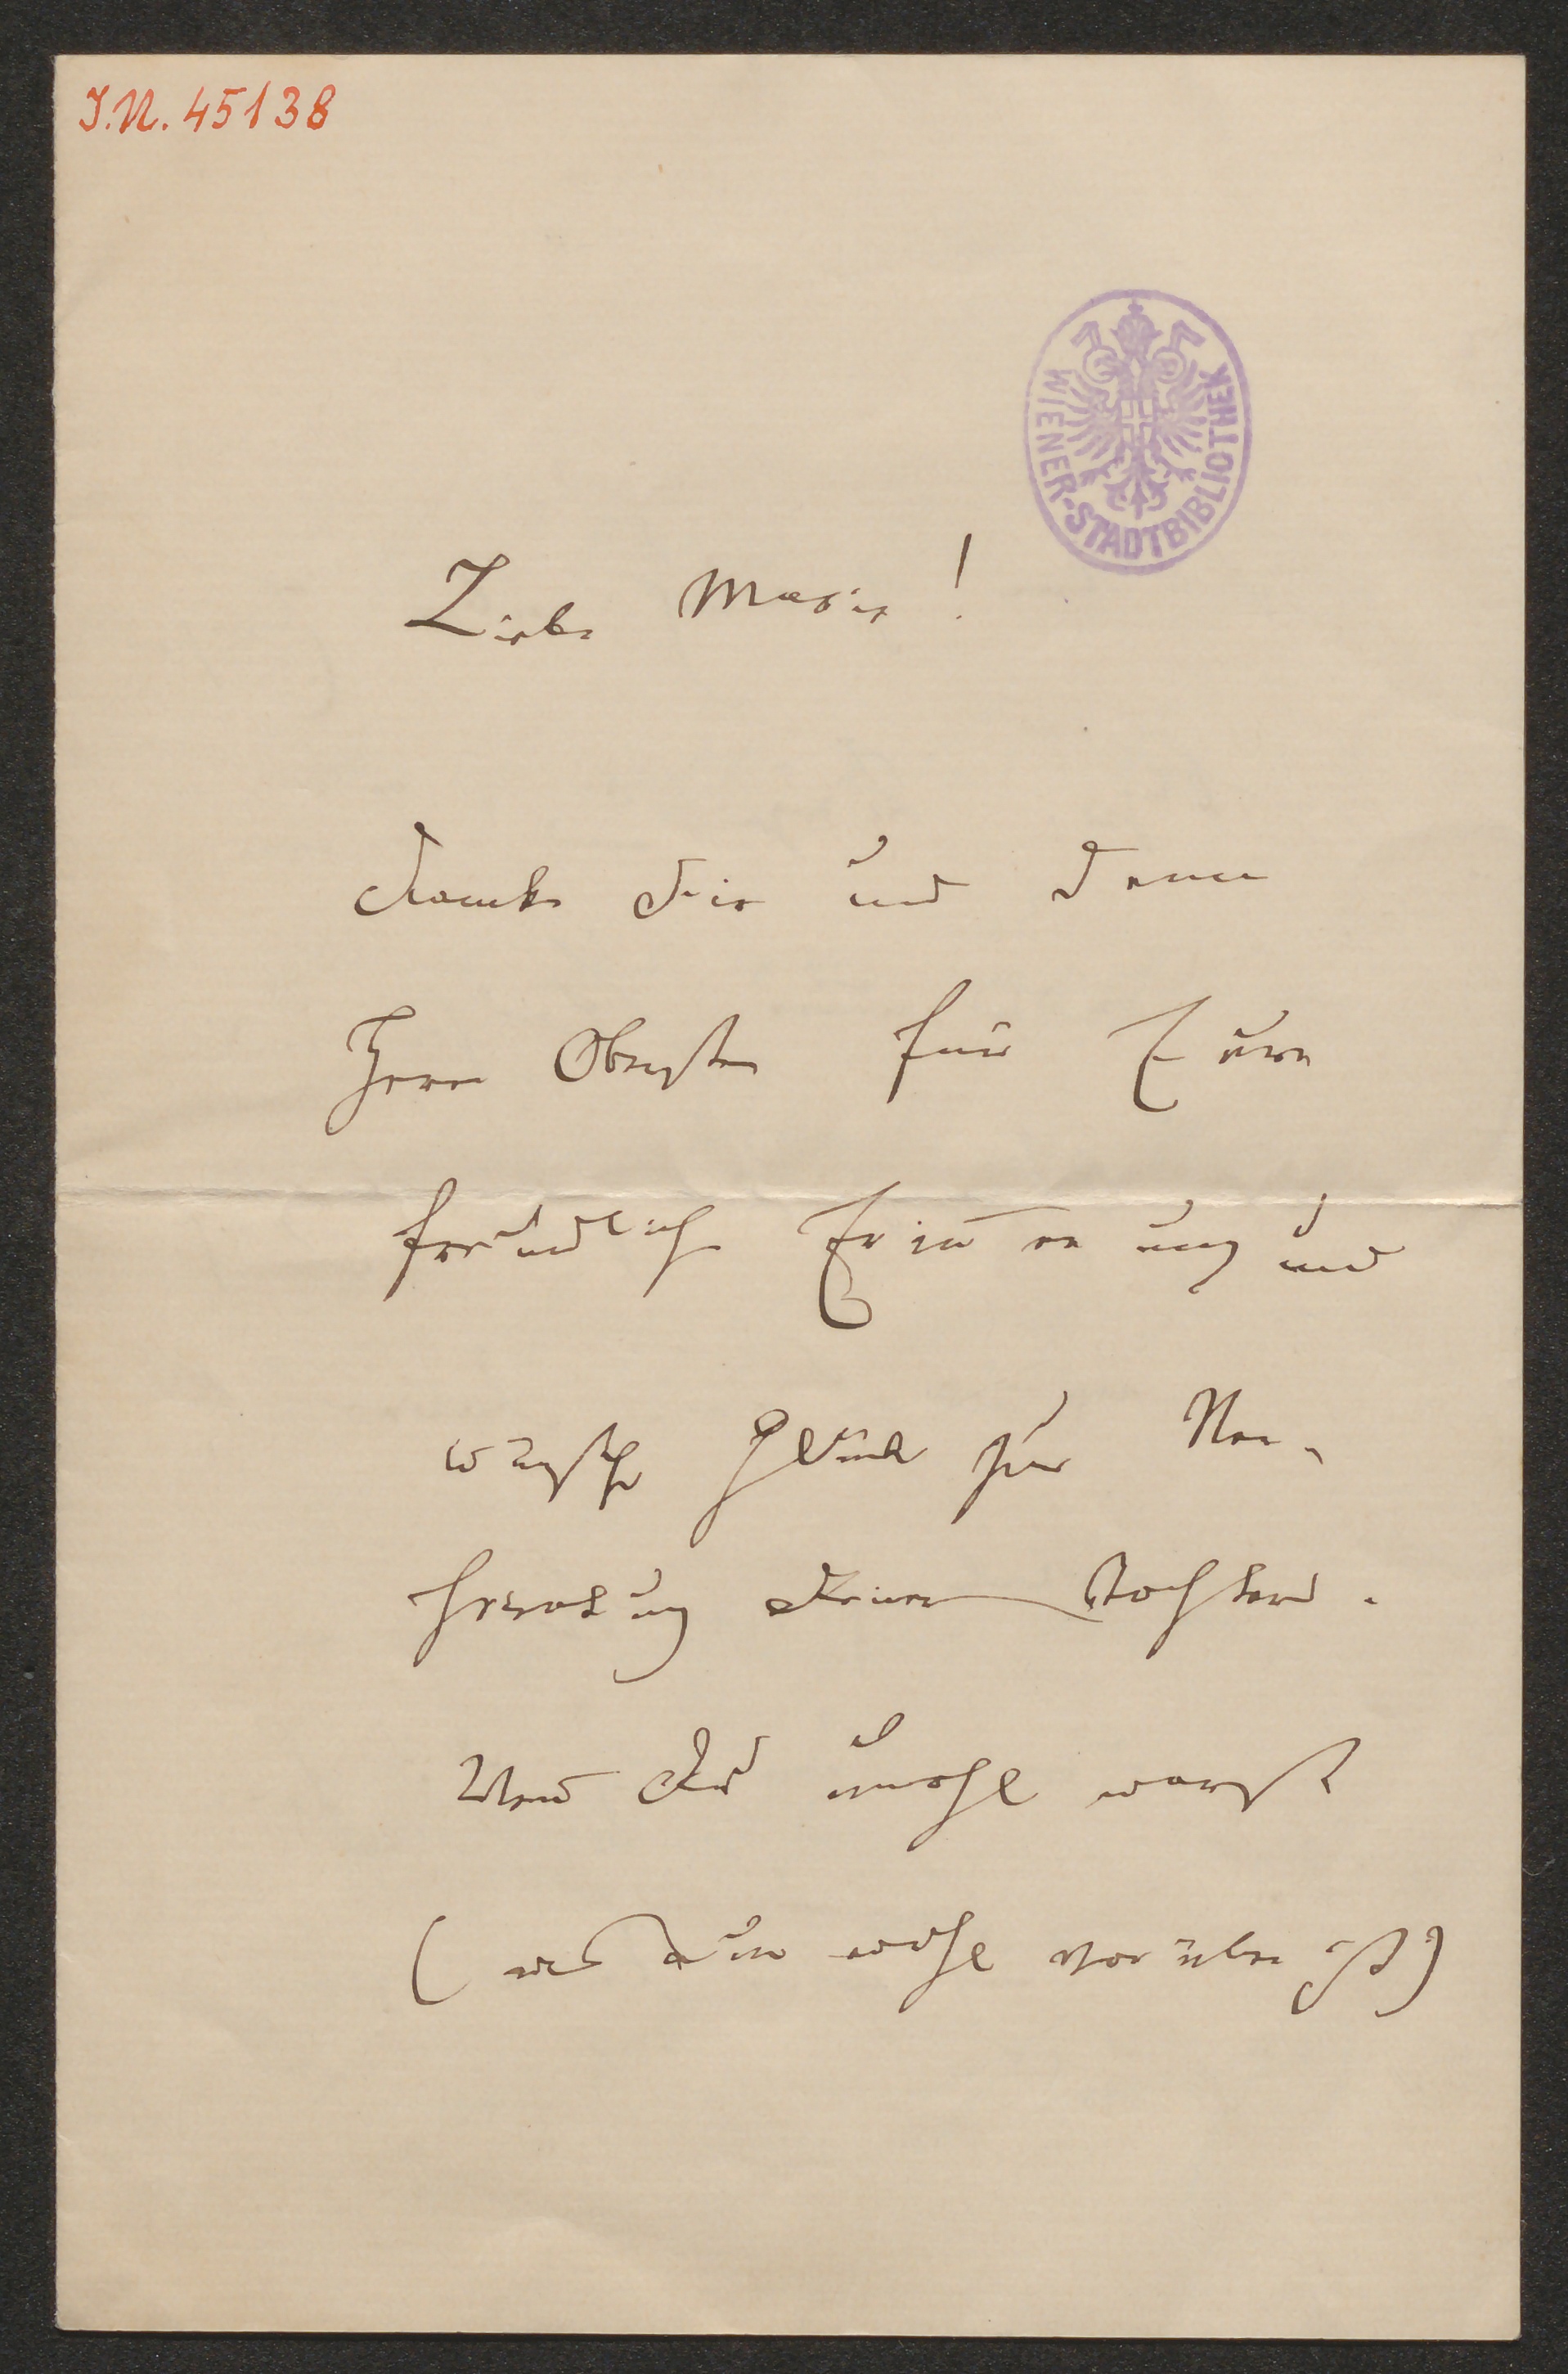 I.N. 45138
WIENER-STADTBIBLIOTHEK
Liebe Marie!
danke Dir und dem
Herrn Obersten für Eure
freundliche Erinnerung und
wünsche Glück zur Ver-
heiratung Deiner Tochter.
Wenn Du unwohl warst
(was nun wohl vorüber ist)